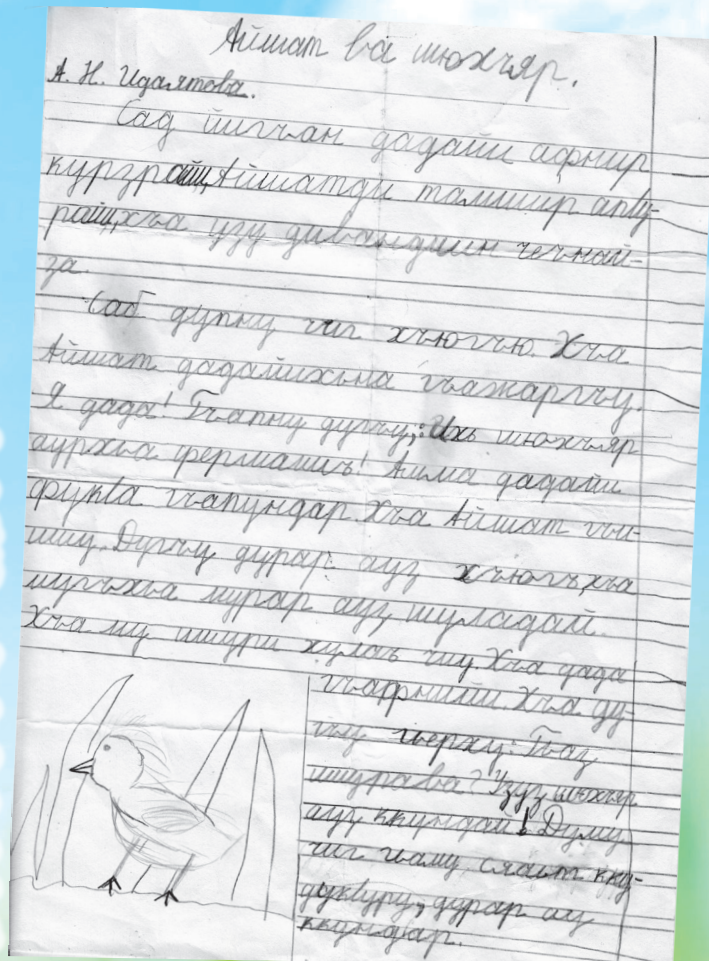 Айшат ва шюхъяр.
А. Н. Идаятова.
Сад йигъан дадайи афнир
курграйи, Айшатди тамшир апIу-
райи, хъа узу дивандиин чечнай-
за.
Саб дупну чиг хъюгъю. Хъа
Айшат дадайихьна гъажаргъу.
Я дада! Гъапну дугъу: Ихь шюхъяр
аурхъа фермайиъ! Амма дадайи
фукIа гъапундар. Хъа Айшат гъи-
шу. Дугъу дурар ауз хъюгъ, хъа
мугъхъа мурар ауз шуладай.
Хъа му ишури хулаъ гъи. Хъа дада
гъафнийи. Хъа ду-
гъу гьерху: Гъаз
ишурава? Узуз шюхъяр
ауз ккундай! Думу
чиг гьаму сяаьт кку-
дукIуру, дурар ау
ккундар.